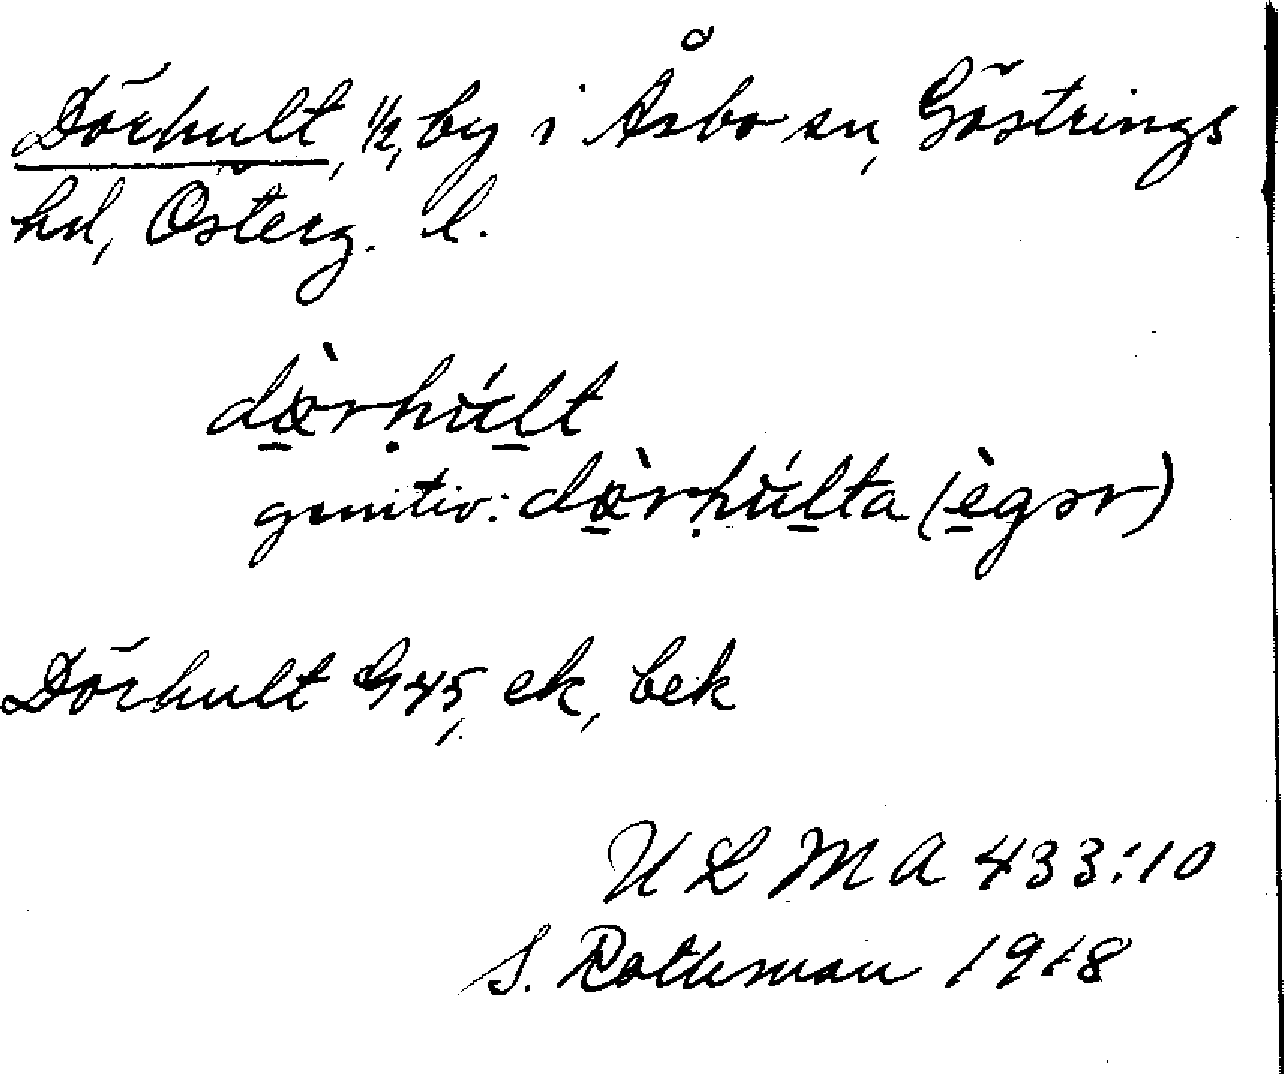 Dörhult, 1/2, by i Åsbo sn, Göstrings
hd, Österg. l.
dø̀rhúlt
genitiv: dø̀rhúlta (ègər)
Dörhult G 45, ek, bek
ULMA 433:10
S. Rothman 1918